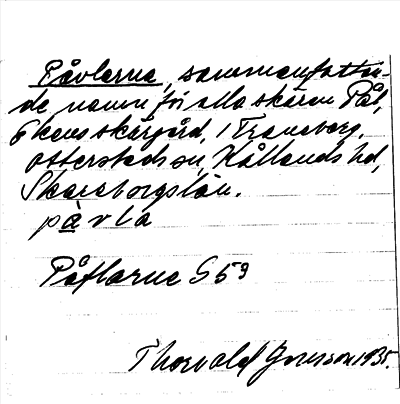 Påvlerna, sammanfattan-
de namn för alla skären Pål,
Ekens skärgård, i Traneberg,
Otterstads sn, Kållands hd,
Skaraborgslän.
påvla
Påflarne S 59
Thorvald Jonsson 1935.